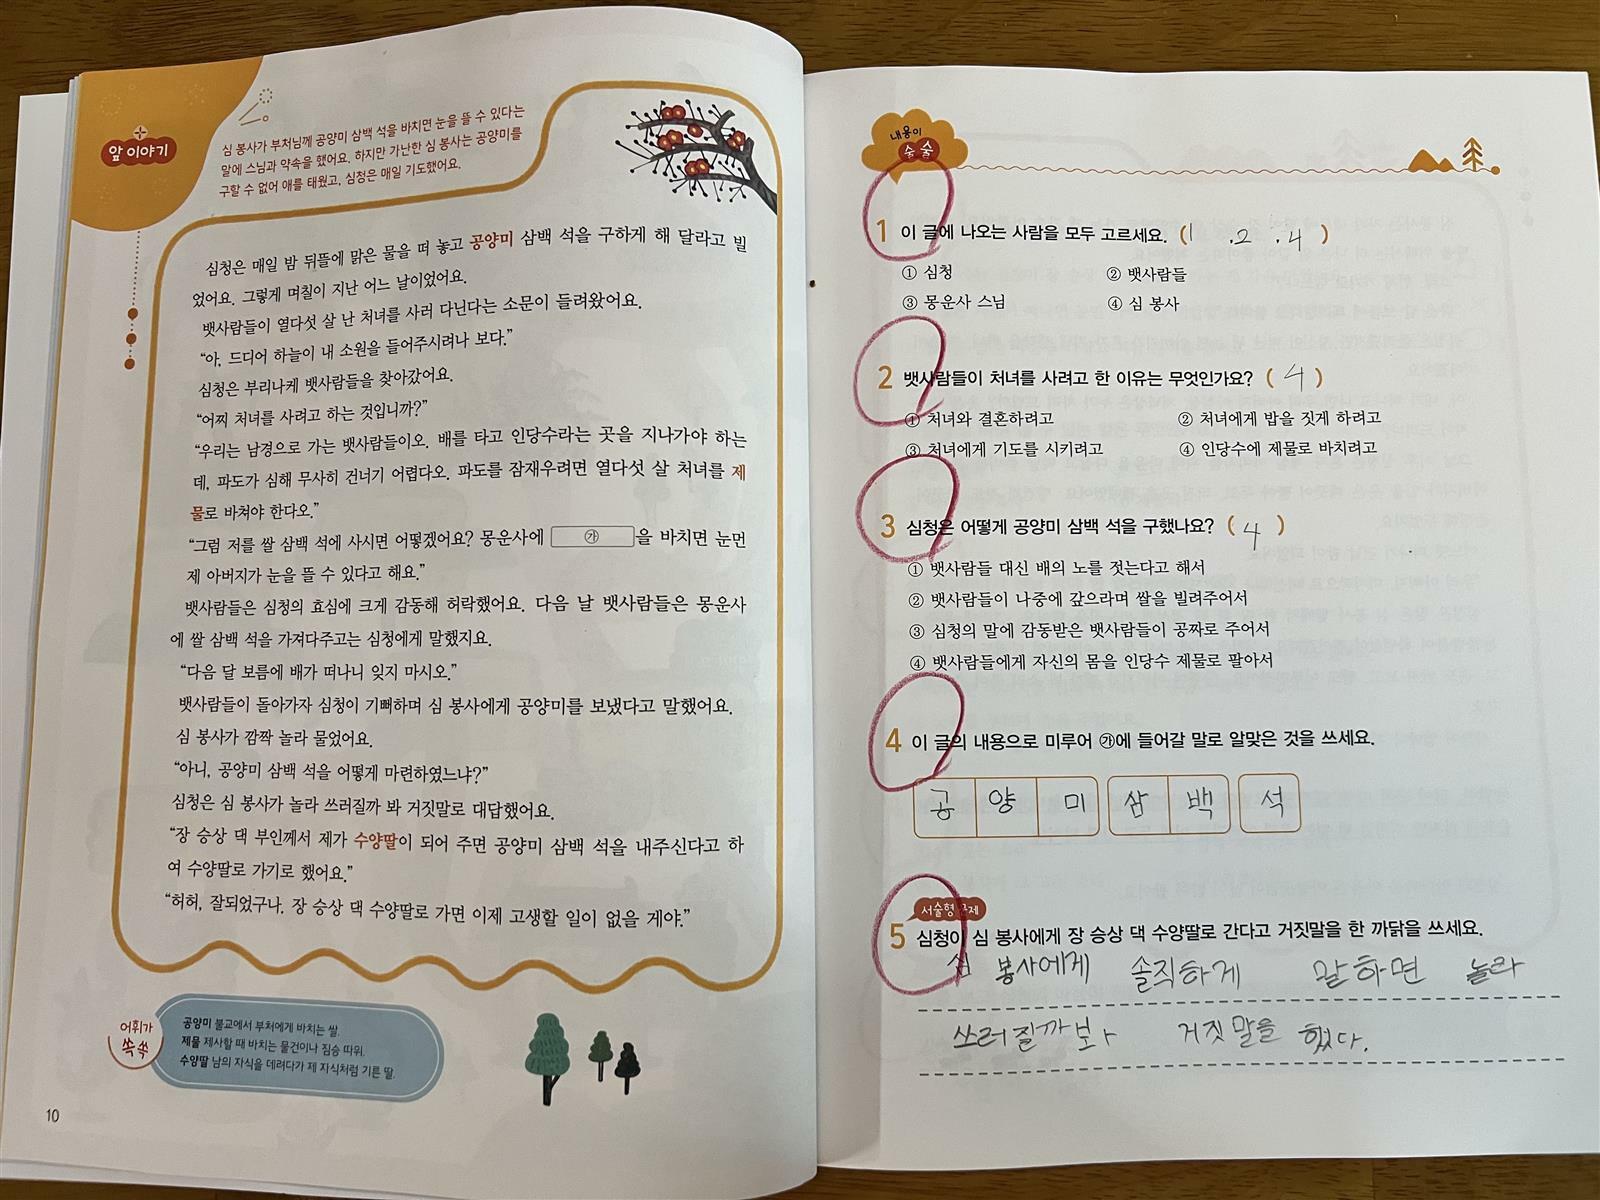 앞 이야기
심 봉사가 부처님께 공양미 삼백 석을 바치면 눈을 뜰 수 있다는
말에 스님과 약속을 했어요. 하지만 가난한 심 봉사는 공양미를
구할 수 없어 애를 태웠고, 심청은 매일 기도했어요.
심청은 매일 밤 뒤뜰에 맑은 물을 떠 놓고 공양미 삼백 석을 구하게 해 달라고 빌
었어요. 그렇게 며칠이 지난 어느 날이었어요.
뱃사람들이 열다섯 살 난 처녀를 사러 다닌다는 소문이 들려왔어요.
“아, 드디어 하늘이 내 소원을 들어주시려나 보다.”
심청은 부리나케 뱃사람들을 찾아갔어요.
“어찌 처녀를 사려고 하는 것입니까?”
“우리는 남경으로 가는 뱃사람들이오. 배를 타고 인당수라는 곳을 지나가야 하는
데, 파도가 심해 무사히 건너기 어렵다오. 파도를 잠재우려면 열다섯 살 처녀를 제
물로 바쳐야 한다오.”
“그럼 저를 쌀 삼백 석에 사시면 어떻겠어요? 몽운사에 ㉮ 을 바치면 눈먼
제 아버지가 눈을 뜰 수 있다고 해요.”
뱃사람들은 심청의 효심에 크게 감동해 허락했어요. 다음 날 뱃사람들은 몽운사
에 쌀 삼백 석을 가져다주고는 심청에게 말했지요.
“다음 달 보름에 배가 떠나니 잊지 마시오.”
뱃사람들이 돌아가자 심청이 기뻐하며 심 봉사에게 공양미를 보냈다고 말했어요.
심 봉사가 깜짝 놀라 물었어요.
“아니, 공양미 삼백 석을 어떻게 마련하였느냐?”
심청은 심 봉사가 놀라 쓰러질까 봐 거짓말로 대답했어요.
“장 승상 댁 부인께서 제가 수양딸이 되어 주면 공양미 삼백 석을 내주신다고 하
여 수양딸로 가기로 했어요.”
“허허, 잘되었구나. 장 승상 댁 수양딸로 가면 이제 고생할 일이 없을 게야.”
어휘가
쏙쏙
공양미 불교에서 부처에게 바치는 쌀.
제물 제사할 때 바치는 물건이나 짐승 따위.
수양딸 남의 자식을 데려다가 제 자식처럼 기른 딸.
10
내용이
술술
1 이 글에 나오는 사람을 모두 고르세요. ( 1 . 2 . 4 )
① 심청 ② 뱃사람들
③ 몽운사 스님 ④ 심 봉사
2 뱃사람들이 처녀를 사려고 한 이유는 무엇인가요? ( 4 )
① 처녀와 결혼하려고 ② 처녀에게 밥을 짓게 하려고
③ 처녀에게 기도를 시키려고 ④ 인당수에 제물로 바치려고
3 심청은 어떻게 공양미 삼백 석을 구했나요? ( 4 )
① 뱃사람들 대신 배의 노를 젓는다고 해서
② 뱃사람들이 나중에 갚으라며 쌀을 빌려주어서
③ 심청의 말에 감동받은 뱃사람들이 공짜로 주어서
④ 뱃사람들에게 자신의 몸을 인당수 제물로 팔아서
4 이 글의 내용으로 미루어 ㉮에 들어갈 말로 알맞은 것을 쓰세요.
공 양 미 삼 백 석
서술형 문제
5 심청이 심 봉사에게 장 승상 댁 수양딸로 간다고 거짓말을 한 까닭을 쓰세요.
심 봉사에게 솔직하게 말하면 놀라
쓰러질까보아 거짓말을 했다.